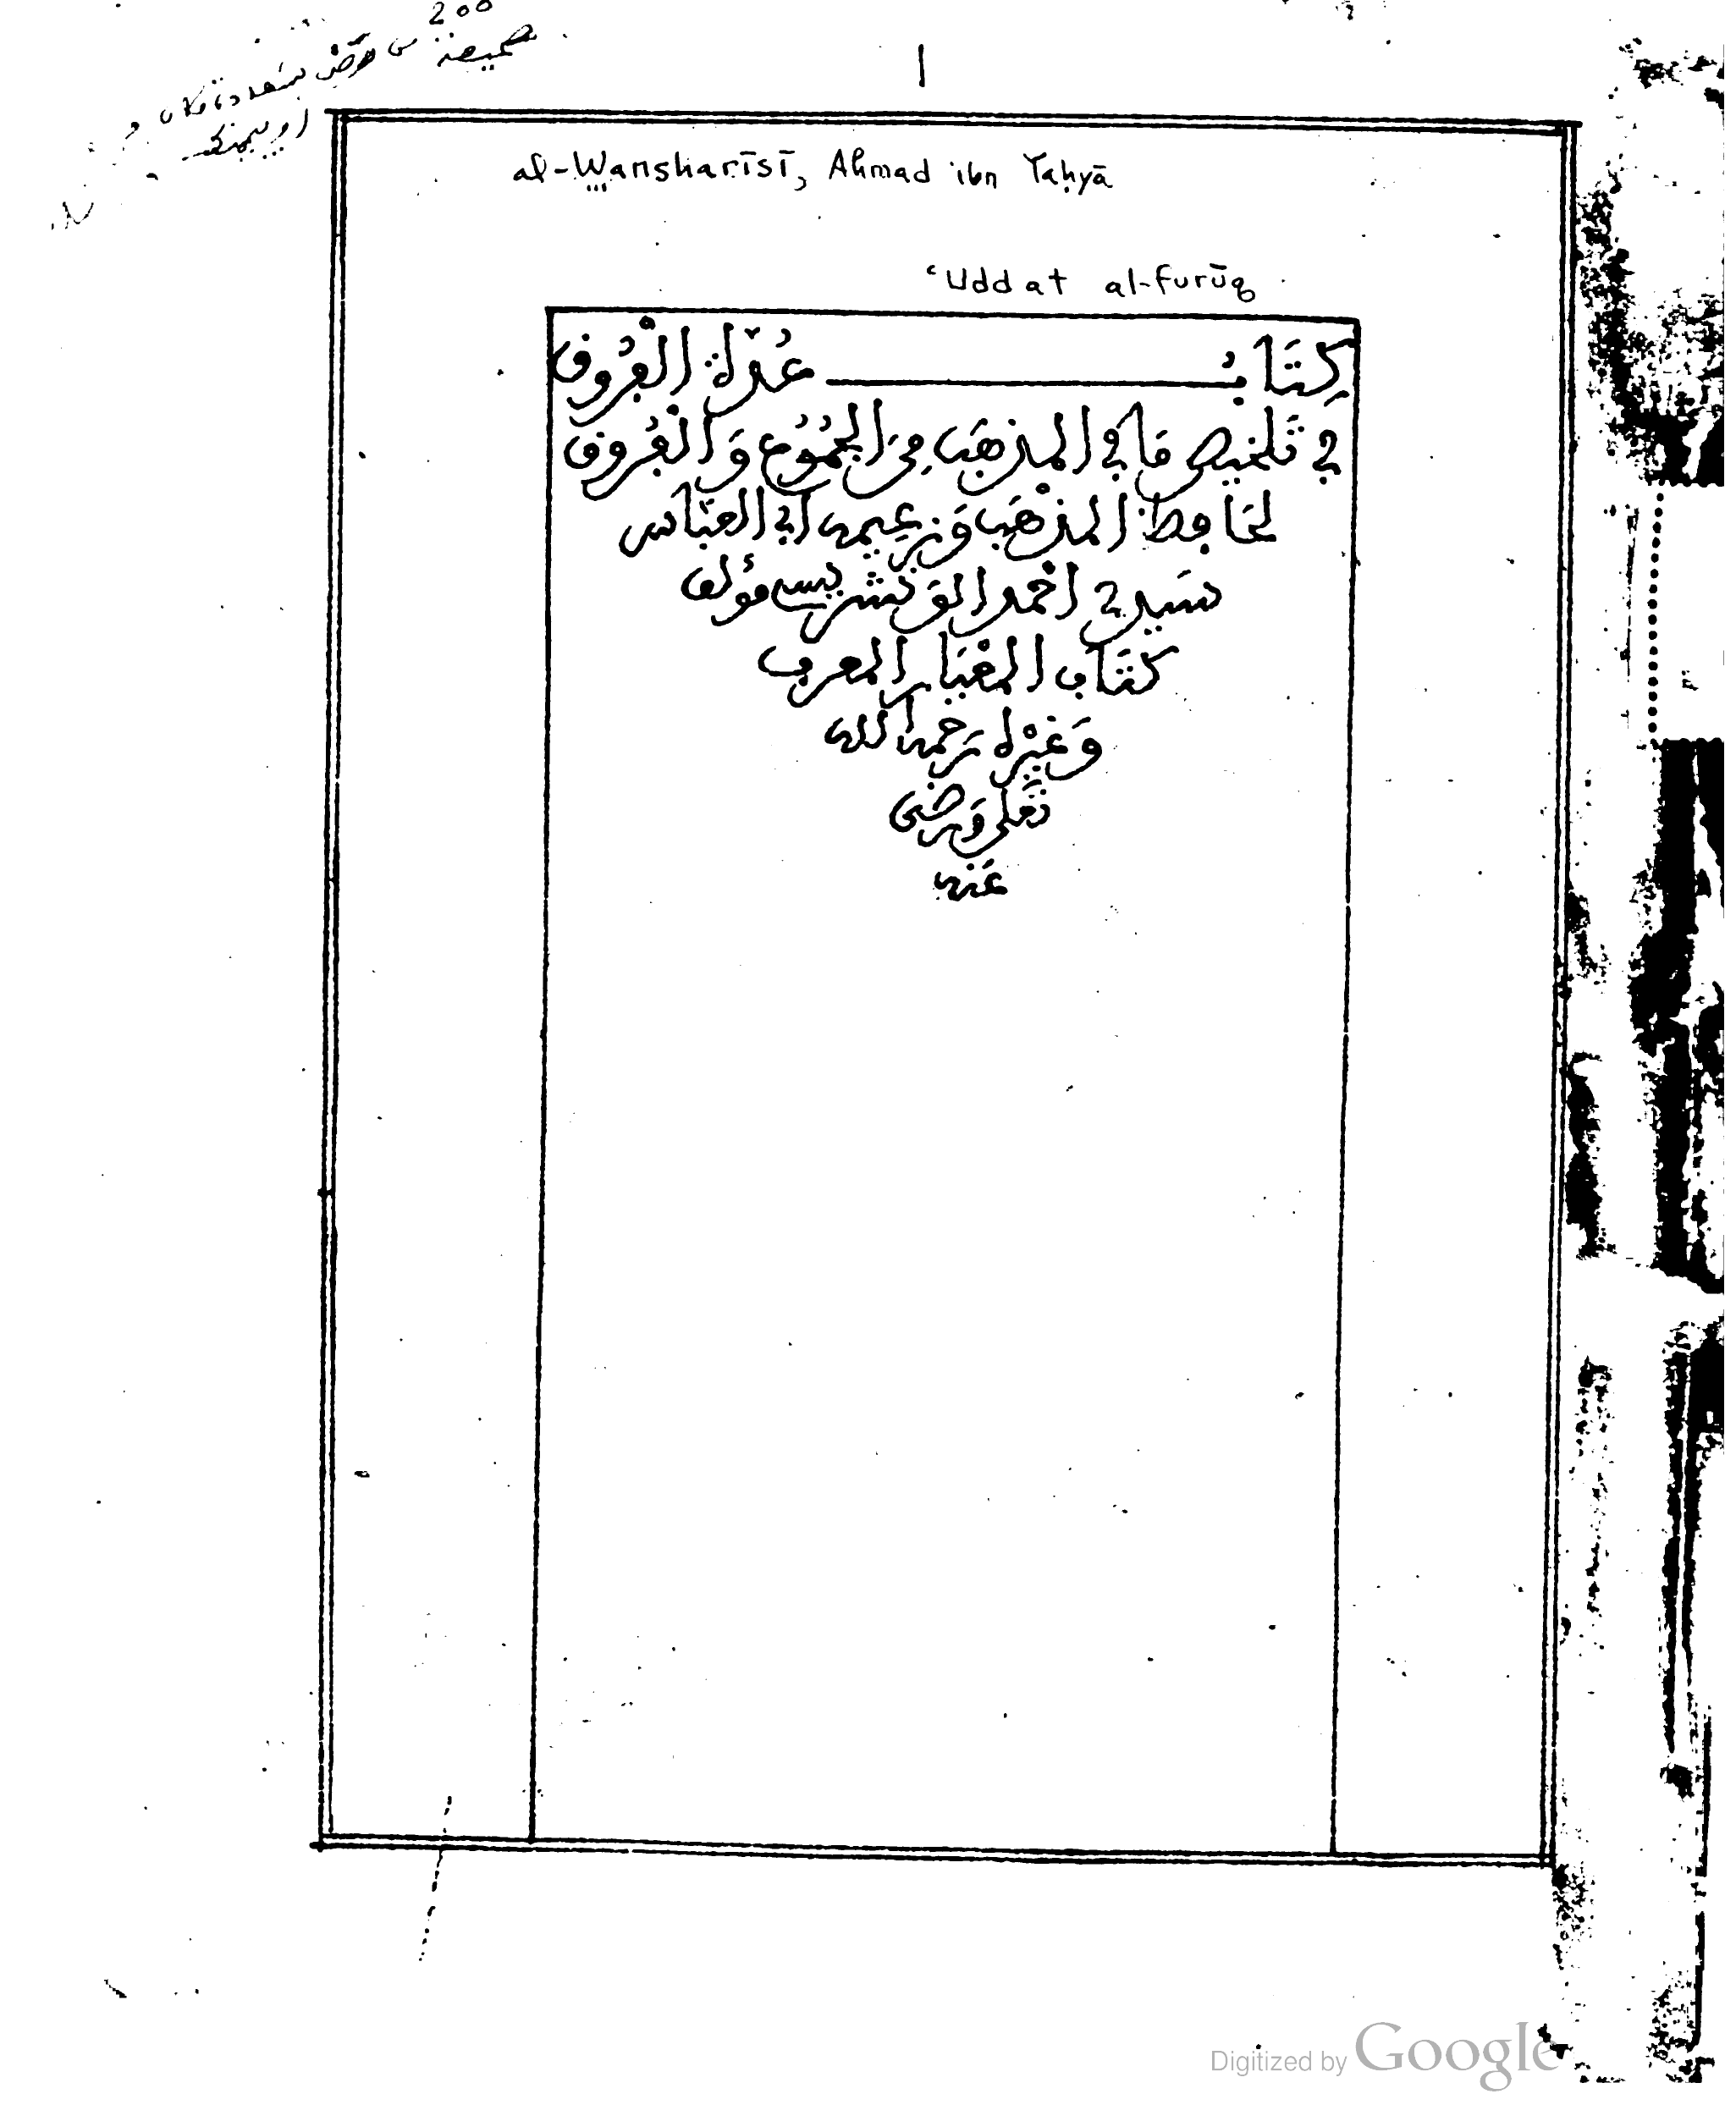 200
صحيفة
al-Wansharīsī, Aḥmad ibn Yaḥyā
ʿUddat al-furūq
كِتَابُ عُدّة الْفُرُوق
في تَلخيص مَا في المذهَب مِنَ الجُمُوُع وَالْفُرُوق
لحَافظ المذْهَب وَزعِيمه أبي العبّاس
سَيدي أحْمد الوَنْشريسي مؤلف
كتَاب المعْيَار المعرب
وَغيْره رَحمه الله
تَعَلى وَرضى
عَنه
Digitized by Google